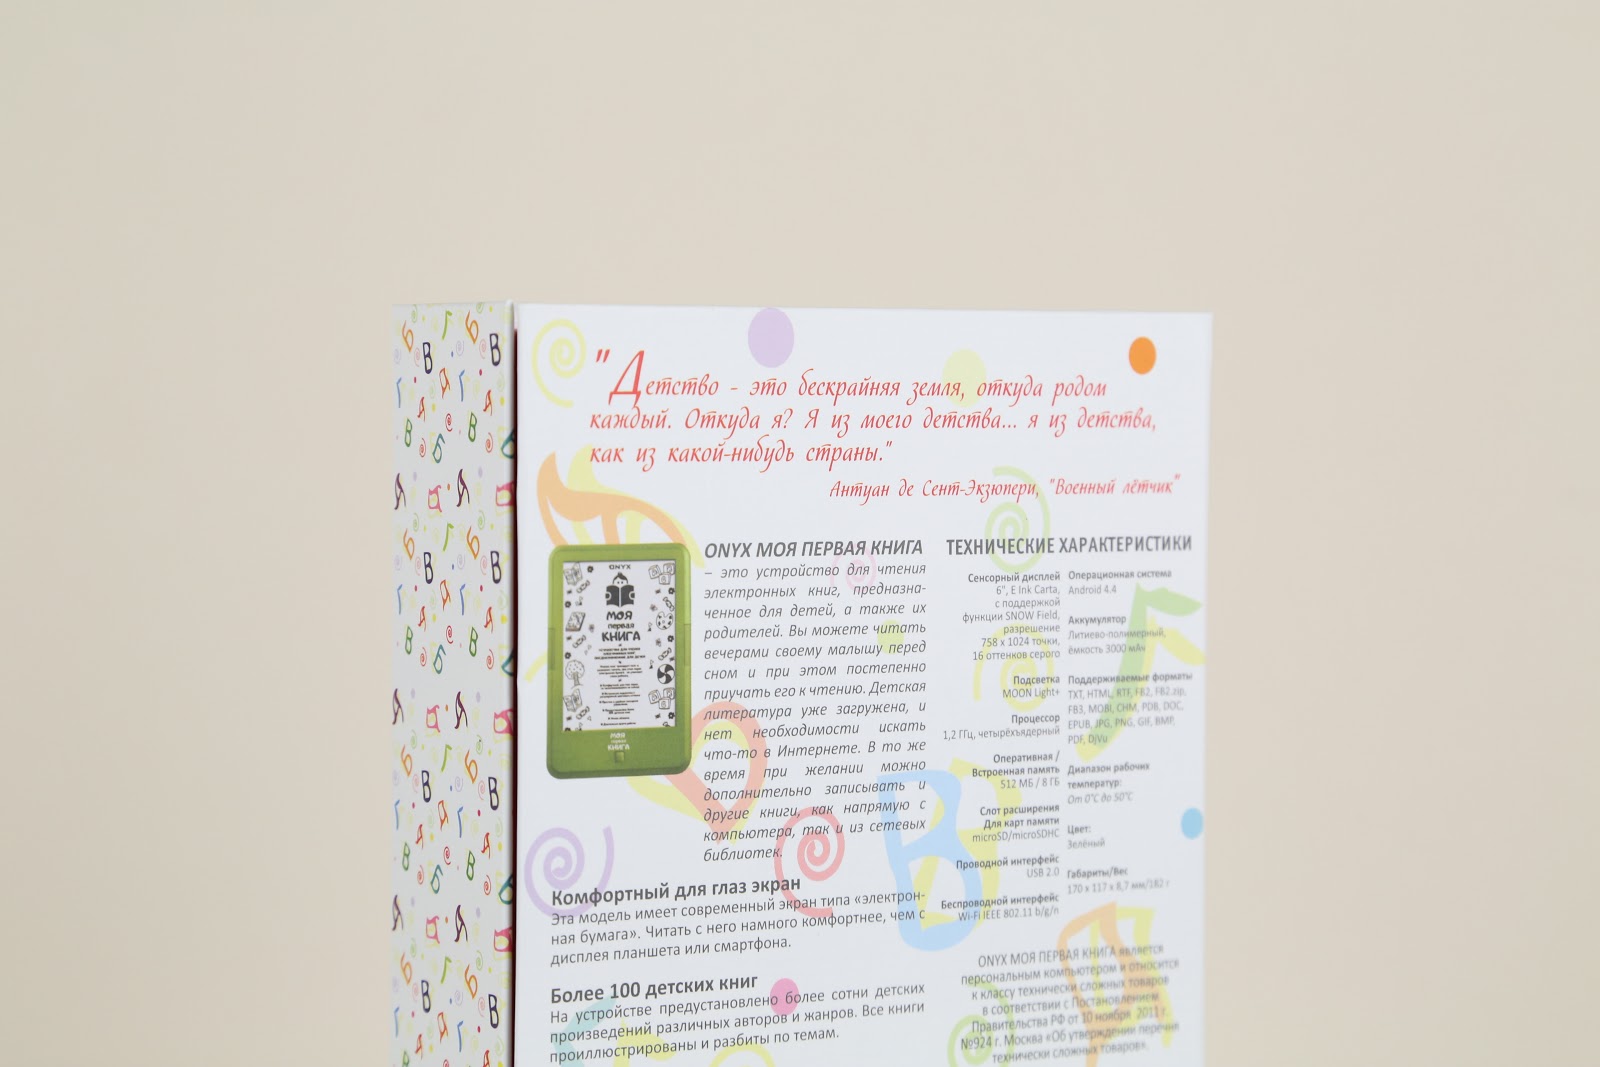 "Детство - это бескрайняя земля, откуда родом
каждый. Откуда я? Я из моего детства... я из детства,
как из какой-нибудь страны."
Антуан де Сент-Экзюпери, "Военный лётчик"
ONYX МОЯ ПЕРВАЯ КНИГА
– это устройство для чтения
электронных книг, предназна-
ченное для детей, а также их
родителей. Вы можете читать
вечерами своему малышу перед
сном и при этом постепенно
приучать его к чтению. Детская
литература уже загружена, и
нет необходимости искать
что-то в Интернете. В то же
время при желании можно
дополнительно записывать и
другие книги, как напрямую с
компьютера, так и из сетевых
библиотек.
ONYX
МОЯ
первая
КНИГА
МОЯ
первая
КНИГА
Комфортный для глаз экран
Эта модель имеет современный экран типа «электрон-
ная бумага». Читать с него намного комфортнее, чем с
дисплея планшета или смартфона.
Более 100 детских книг
На устройстве предустановлено более сотни детских
произведений различных авторов и жанров. Все книги
проиллюстрированы и разбиты по темам.
ТЕХНИЧЕСКИЕ ХАРАКТЕРИСТИКИ
Сенсорный дисплей
6", E Ink Carta,
с поддержкой
функции SNOW Field,
разрешение
758 x 1024 точки,
16 оттенков серого
Подсветка
MOON Light+
Процессор
1,2 ГГц, четырёхъядерный
Оперативная /
Встроенная память
512 МБ / 8 ГБ
Слот расширения
Для карт памяти
microSD/microSDHC
Проводной интерфейс
USB 2.0
Беспроводной интерфейс
Wi-Fi IEEE 802.11 b/g/n
Операционная система
Android 4.4
Аккумулятор
Литиево-полимерный,
ёмкость 3000 мАч
Поддерживаемые форматы
TXT, HTML, RTF, FB2, FB2.zip,
FB3, MOBI, CHM, PDB, DOC,
EPUB, JPG, PNG, GIF, BMP,
PDF, DjVu
Диапазон рабочих
температур:
От 0°C до 50°C
Цвет:
Зелёный
Габариты/Вес
170 x 117 x 8,7 мм/182 г
ONYX МОЯ ПЕРВАЯ КНИГА является
персональным компьютером и относится
к классу технически сложных товаров
в соответствии с Постановлением
Правительства РФ от 10 ноября 2011 г.
№924 г. Москва «Об утверждении перечня
технически сложных товаров».